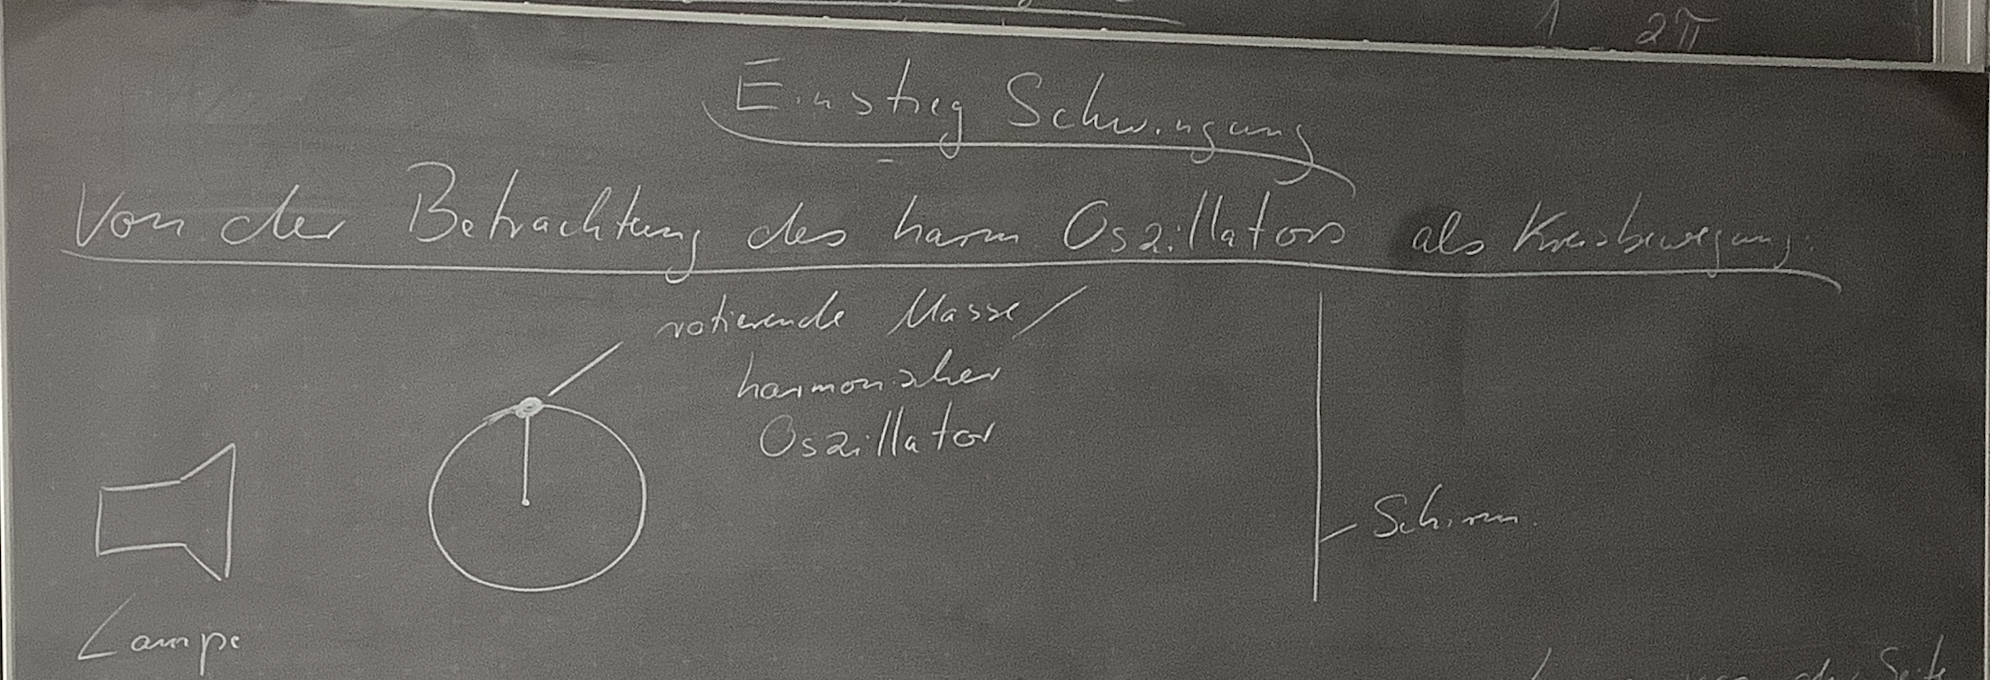 1 2π
Einstieg Schwingung
Von der Betrachtung des harm Oszillators als Kreisbewegung:
rotierende Masse/
harmonischer
Oszillator
Schirm.
Lampe
von der Seite